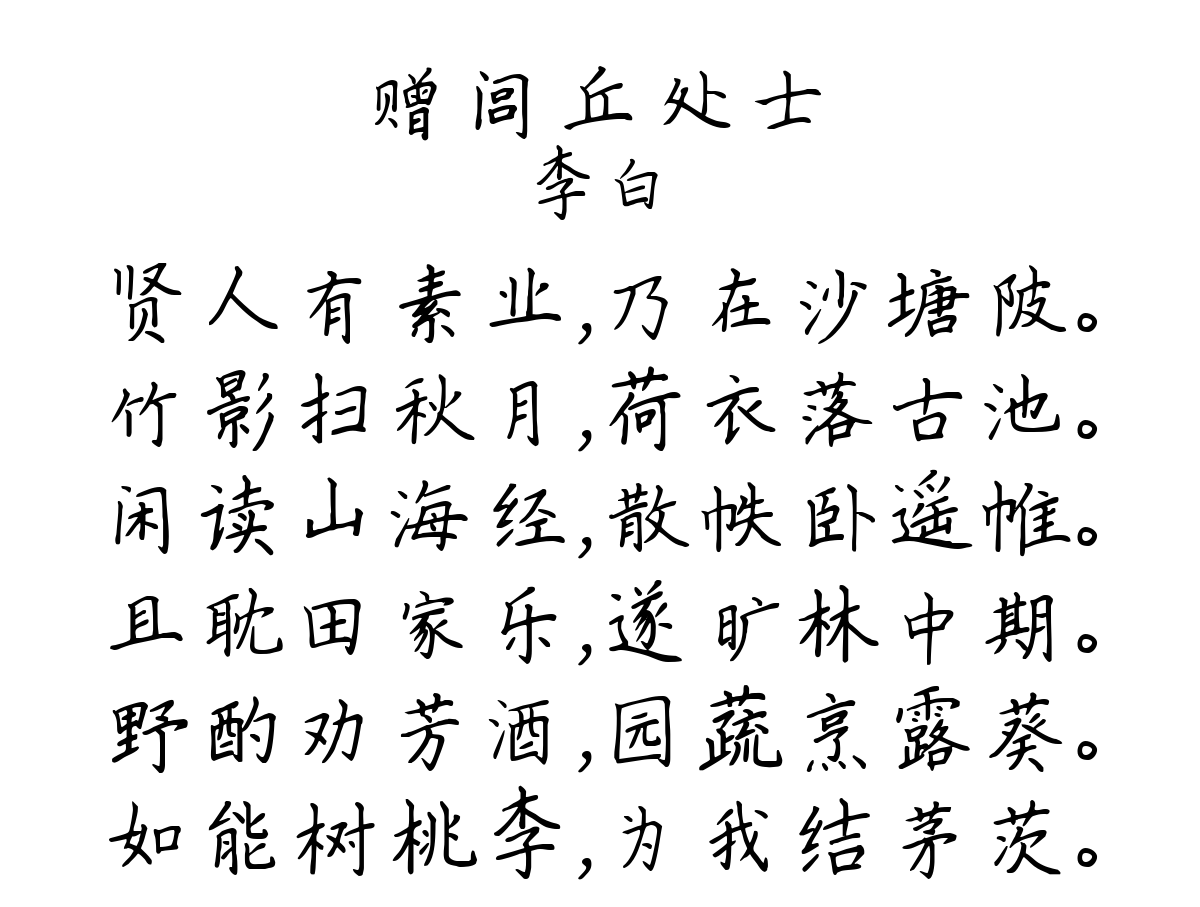 赠闾丘处士
李白
贤人有素业,乃在沙塘陂。
竹影扫秋月,荷衣落古池。
闲读山海经,散帙卧遥帷。
且耽田家乐,遂旷林中期。
野酌劝芳酒,园蔬烹露葵。
如能树桃李,为我结茅茨。